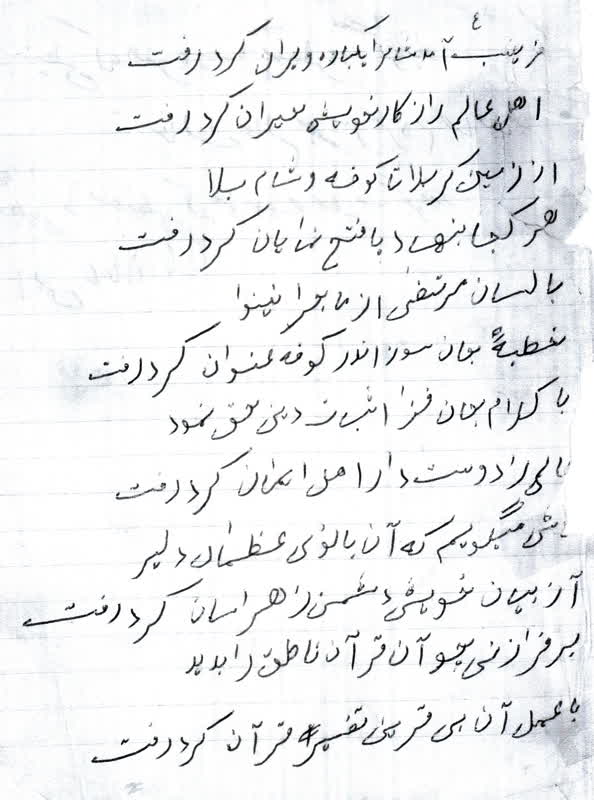 زینب ع آمد شام را یکباره ویران کرد رفت
اهل عالم را ز کار خویش حیران کرد رفت
از زمین کربلا تا کوفه و شام بلا
هر کجا بنهاد پا فتح نمایان کرد رفت
با لسان مرتضی از ماجرای نینوا
خطبهٔ جان سوز اندر کوفه عنوان کرد رفت
با کلام جان فزا اثبات دین حق نمود
عالمی را دوست دار اهل ایمان کرد رفت
فاش میگویم که آن بانوی عظمای دلیر
از بیان خویش دشمن را هراسان کرد رفت
بر فراز نی چو آن قرآن ناطق را بدید
با عمل آن بی قرین تفسیر قرآن کرد رفت